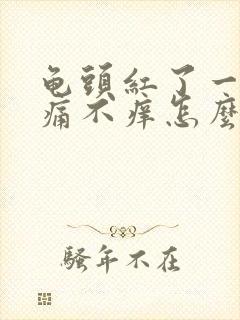 龟頭紅了一
痛不痒怎麼
騷年不在